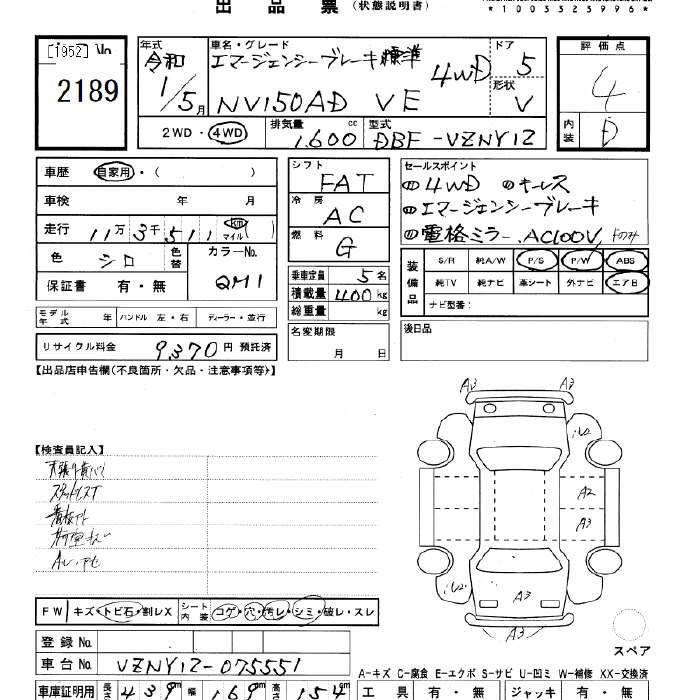 出品票（状態説明書）
*1003323996*
[1952] No
2189
年式
令和
1/5月
車名・グレード
エマージェンシーブレーキ標準 4WD
NV150AD VE
ドア
5
形状
V
評価点
4
内装
D
2WD・4WD
排気量 cc
1,600
型式
DBF-VZNY12
車歴 自家用・( )
車検 年 月
走行 11万3千511 km マイル( )
色 シロ 色替
カラーNo. QM1
保証書 有・無
シフト
FAT
冷房
AC
燃料
G
乗車定員 5名
積載量 400kg
総重量 kg
セールスポイント
4WD キーレス
エマージェンシーブレーキ
電格ミラー.AC100V
装備品
S/R 純A/W P/S P/W ABS
純TV 純ナビ 革シート 外ナビ エアB
ナビ型番：
モデル年式 年 ハンドル 左・右 ディーラー・並行
リサイクル料金 9,370円 預託済
名変期限
月 日
後日品
【出品店申告欄(不良箇所・欠品・注意事項等)】
【検査員記入】
A3 A3
A2
A3
A3
A3
FW キズ・トビ石・割レX シート内装 コゲ・穴・汚レ・シミ・破レ・スレ
スペア
登録No.
車台No. VZNY12-075551
A-キズ C-腐食 E-エクボ S-サビ U-凹ミ W-補修 XX-交換済
車庫証明用 長さ 439cm 幅 169cm 高さ 154cm
工具 有・無 ジャッキ 有・無